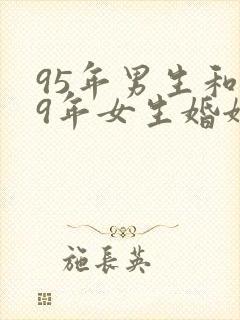 95年男生和
9年女生婚
施長英